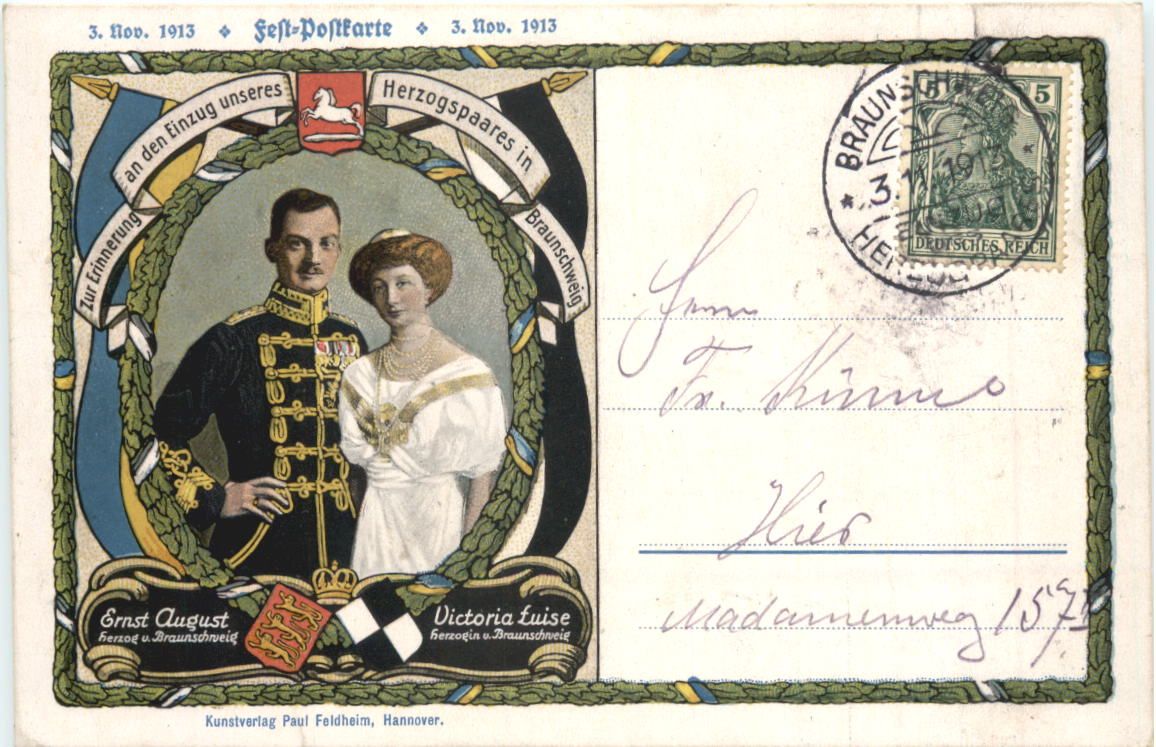 3. Nov. 1913 ❖ Fest-Postkarte ❖ 3. Nov. 1913
Zur Erinnerung an den Einzug unseres Herzogspaares in Braunschweig
BRAUNSCHWEIG
3.11.1913
5 5
DEUTSCHES REICH
Herrn
Fr.
Hier
Madamenweg 157
Ernst August
Herzog v. Braunschweig
Victoria Luise
Herzogin v. Braunschweig
Kunstverlag Paul Feldheim, Hannover.